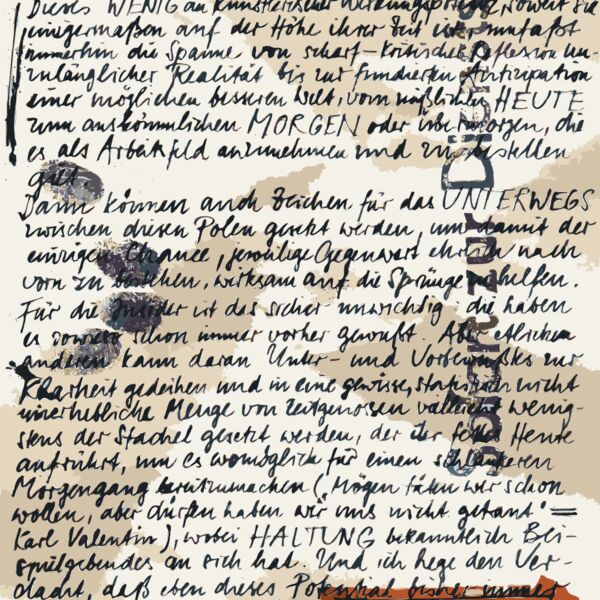 Dieses WENIG an künstlerischer Wirkungspotenz, soweit sie
einigermaßen auf der Höhe ihrer Zeit ist, umfaßt
immerhin die Spanne von scharf-kritischer Reflexion un-
zulänglicher Realität bis zur fundierten Antizipation
einer möglichen besseren Welt, vom häßlichen HEUTE
zum auskömmlichen MORGEN oder übermorgen, die
es als Arbeitsfeld anzunehmen und zu bestellen
gilt.
Dann können auch Zeichen für das UNTERWEGS
zwischen diesen Polen gesetzt werden, um damit der
einzigen Chance, jeweilige Gegenwart ehrlich nach
vorn zu bestehen, wirksam auf die Sprünge zu helfen.
Für die Insider ist das sicher unwichtig, die haben
es sowieso schon immer vorher gewußt. Aber etlichen
anderen kann daran Unter- und Vorbewußtes zur
Klarheit gedeihen und in eine gewisse, statistisch nicht
unerhebliche Menge von Zeitgenossen vielleicht wenig-
stens der Stachel gesetzt werden, der ihr fettes Heute
aufrührt, um es womöglich für einen schlankeren
Morgengang bereitzumachen („Mögen täten wir schon
wollen, aber dürfen haben wir uns nicht getraut" =
Karl Valentin), wobei HALTUNG bekanntlich Bei-
spielgebendes an sich hat. Und ich hege den Ver-
dacht, daß eben dieses Potential bisher immer
zur